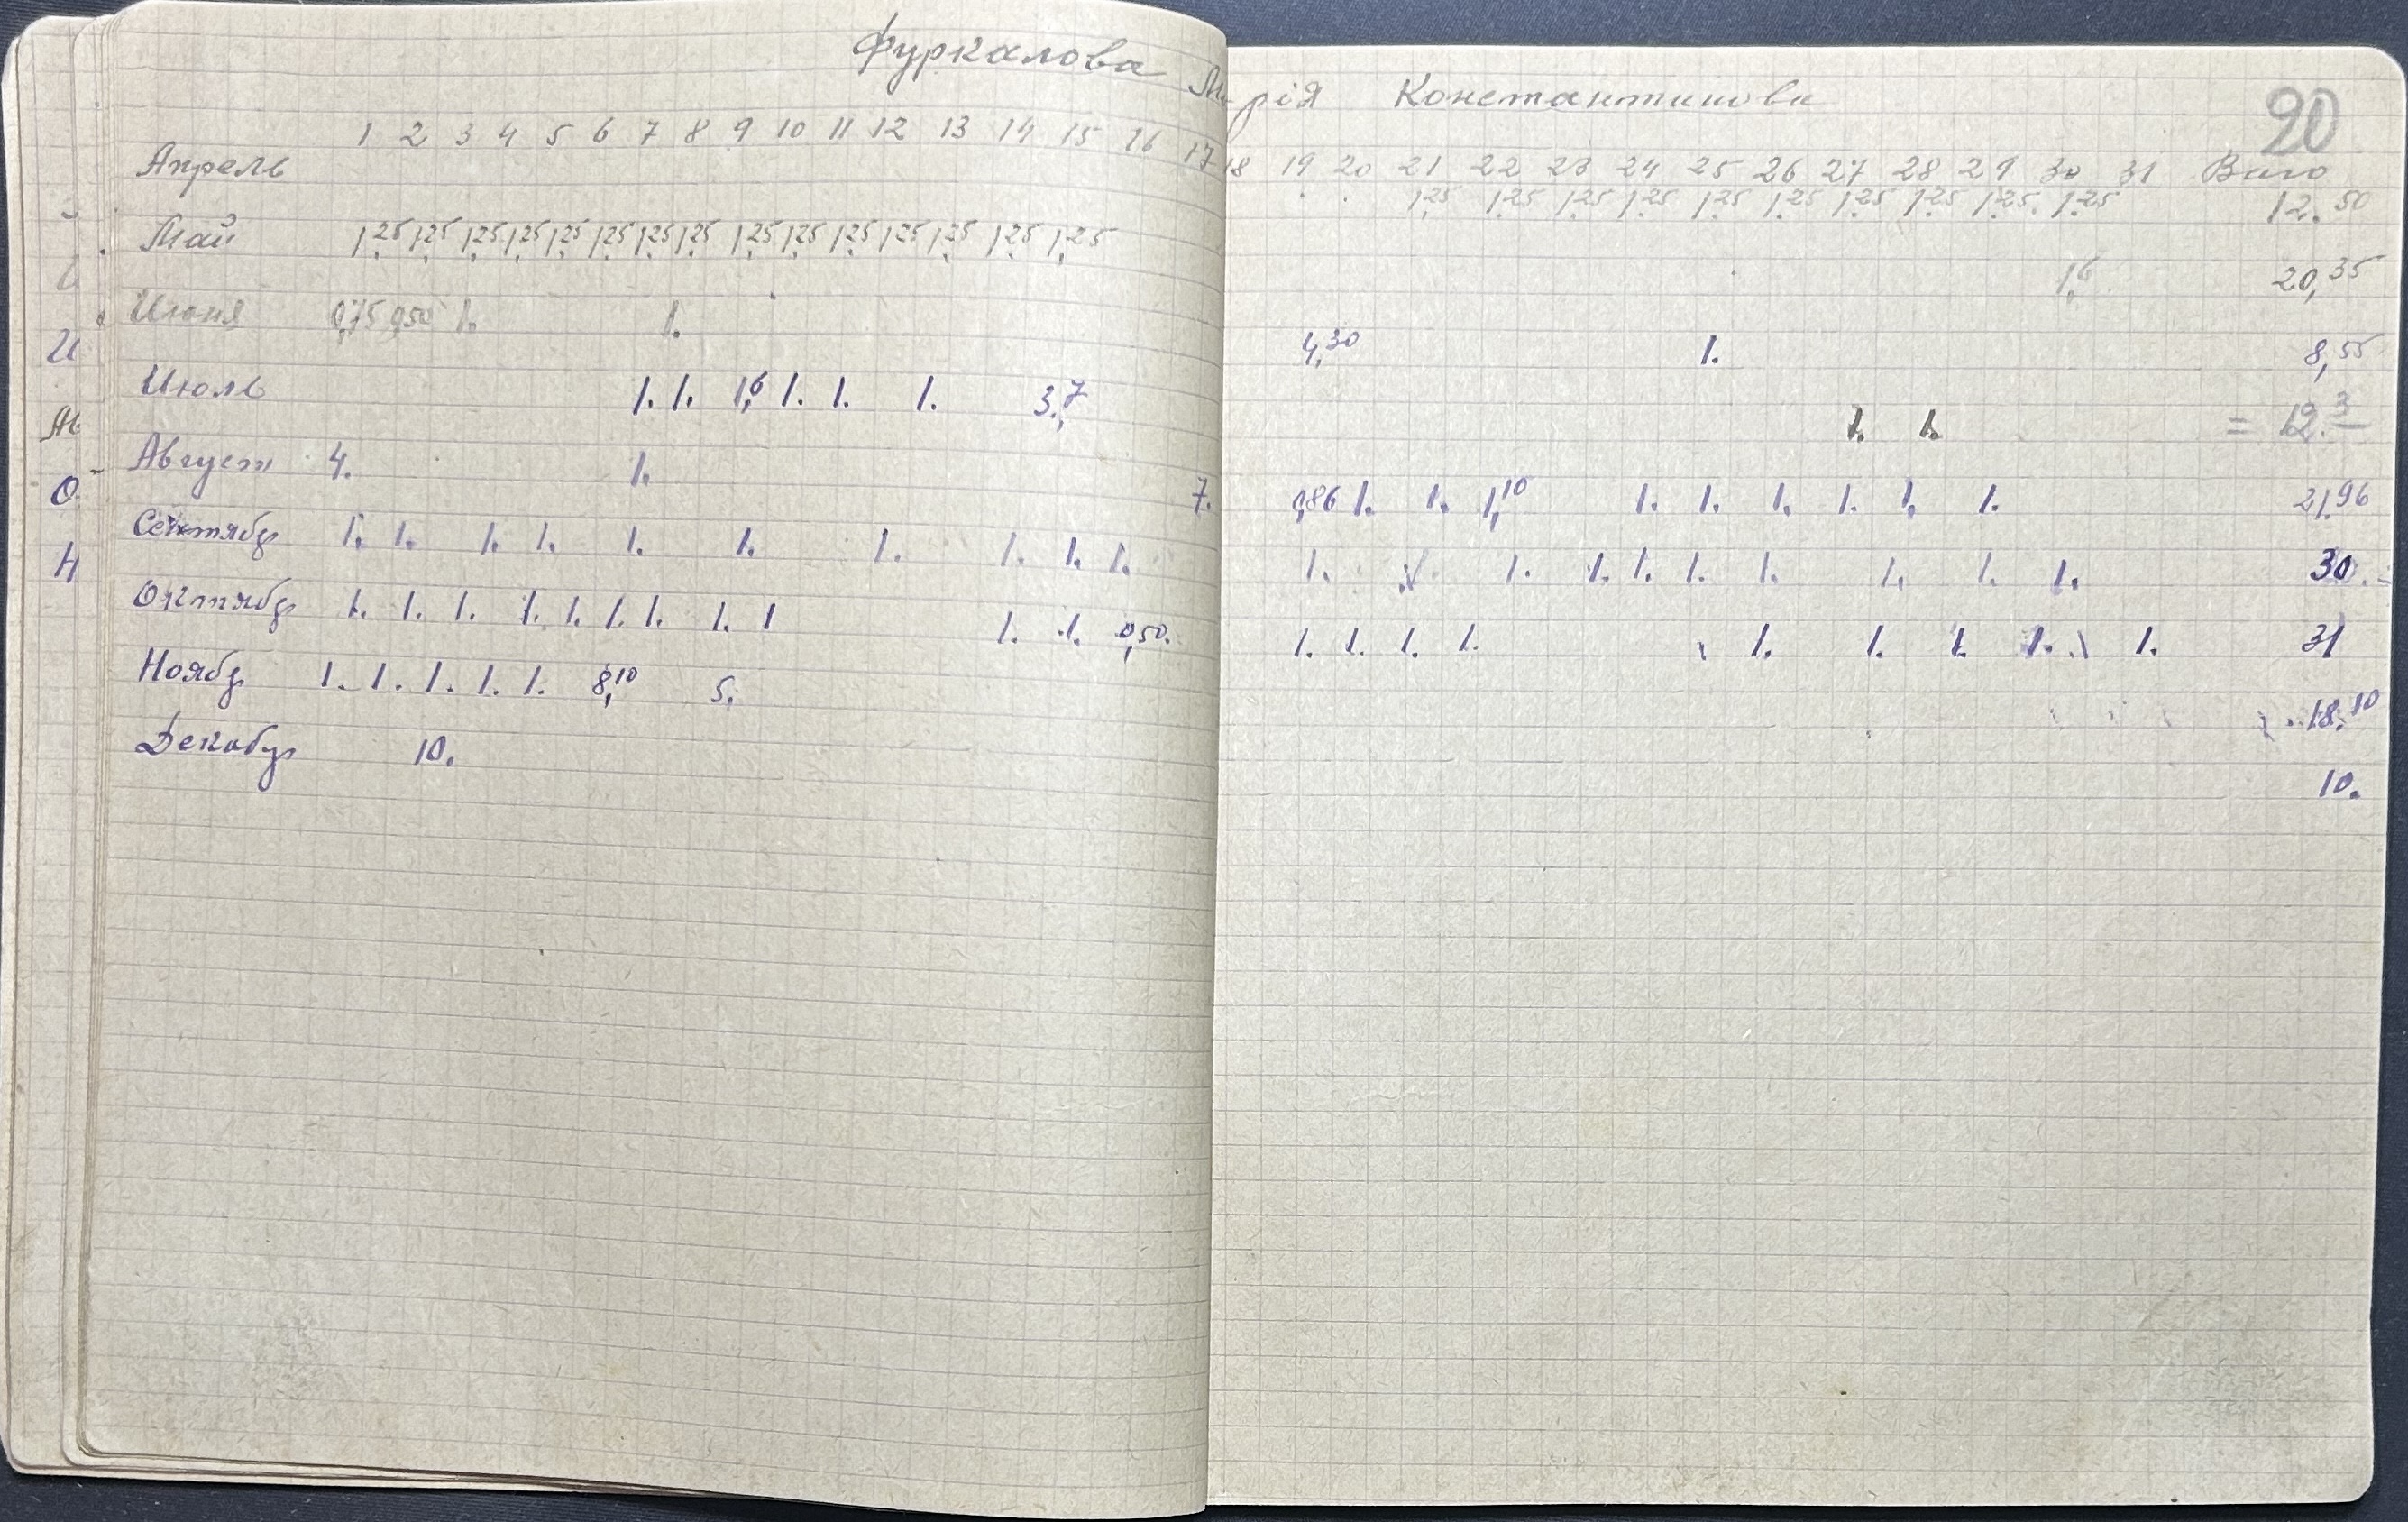 20
Фуркалова Марія Константиновн
1 2 3 4 5 6 7 8 9 10 11 12 13 14 15 16 17 18 19 20 21 22 23 24 25 26 27 28 29 30 31 Всего
Апрель 1,25 1,25 1,25 1,25 1,25 1,25 1,25 1,25 1,25 1,25 12.50
Май 1,25 1,25 1,25 1,25 1,25 1,25 1,25 1,25 1,25 1,25 1,25 1,25 1,25 1,25 1,25 1,6 20,35
Июня 0,75 0,50 1. 1. 4,30 1. 8,55
Июль 1. 1. 1,6 1. 1. 1. 3,7 1. 1. = 12.3
Август 4. 1. 7. 0,86 1. 1. 1,10 1. 1. 1. 1. 1. 1. 21.96
Сентябр 1. 1. 1. 1. 1. 1. 1. 1. 1. 1. 1. 1. 1. 1. 1. 1. 1. 1. 1. 1. 30.-
Октябр 1. 1. 1. 1. 1. 1. 1. 1. 1 1. 1. 0,50. 1. 1. 1. 1. 1. 1. 1. 1. 1. 31
Ноябр 1. 1. 1. 1. 1. 8,10 5. 18.10
Декабр 10. 10.
И
Ав
О
Н